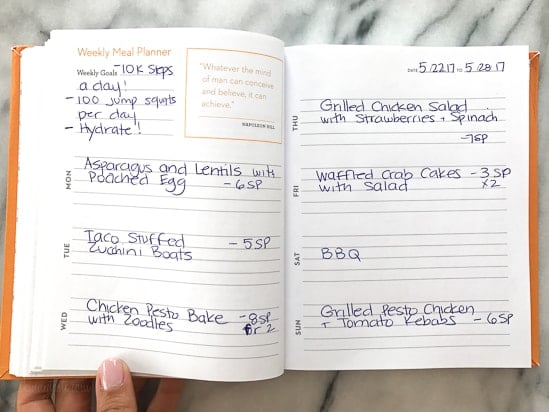 Weekly Meal Planner
Weekly Goals -10K Steps
a day!
- 100 jump squats
per day
- Hydrate!
"Whatever the mind
of man can conceive
and believe, it can
achieve."
NAPOLEON HILL
MON
Asparagus and Lentils with
Poached Egg -6SP
TUE
Taco Stuffed -5SP
Zucchini Boats
WED
Chicken Pesto Bake -8SP
with Zoodles for 2
DATE 5/22 17 TO 5/28 17
THU
Grilled Chicken Salad
with Strawberries + Spinach
-7SP
FRI
Waffled Crab Cakes -3SP
with Salad x2
SAT
BBQ
SUN
Grilled Pesto Chicken
+ Tomato Kebabs -6SP